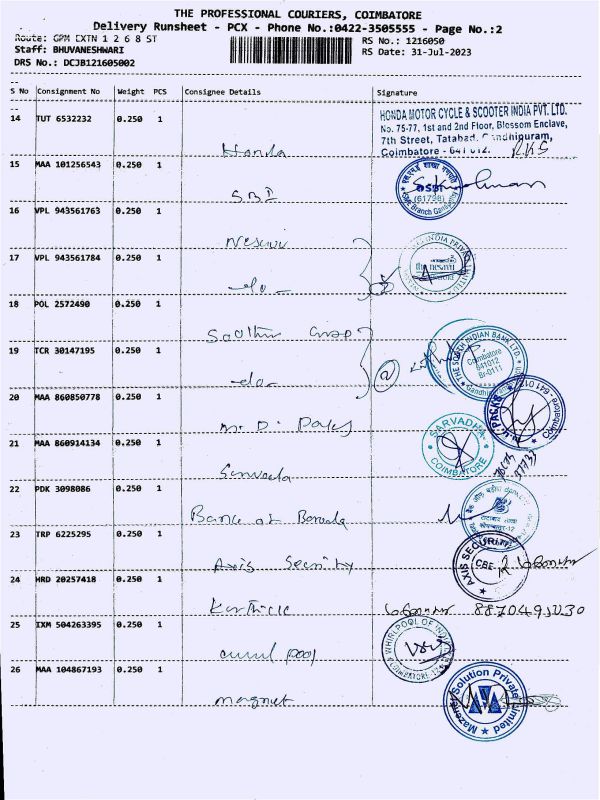 THE PROFESSIONAL COURIERS, COIMBATORE
Delivery Runsheet - PCX - Phone No.:0422-3505555 - Page No.:2
Route: GPM EXTN 1 2 6 8 ST
RS No.: 1216050
Staff: BHUVANESHWARI
RS Date: 31-Jul-2023
DRS No.: DCJB121605002
S No Consignment No Weight PCS Consignee Details Signature
14 TUT 6532232 0.250 1 Honda
HONDA MOTOR CYCLE & SCOOTER INDIA PVT. LTD.
No. 75-77, 1st and 2nd Floor, Blossom Enclave,
7th Street, Tatabad, Gandhipuram,
Coimbatore - 641 012. RKS
15 MAA 101256543 0.250 1 SBI
SBI
(61798)
16 VPL 943561763 0.250 1
17 VPL 943561784 0.250 1 -do-
18 POL 2572490 0.250 1
19 TCR 30147195 0.250 1 -do-
2
THE SOUTH INDIAN BANK LTD.
Coimbatore
641012
Br-0111
20 MAA 860850778 0.250 1
PACKS
Coimbatore - 641 012
21 MAA 860914134 0.250 1
SARVADHA
COIMBATORE
22 PDK 3098086 0.250 1 Bank of Baroda
23 TRP 6225295 0.250 1 Axis Security
AXIS SECURITY
CBE
24 HRD 20257418 0.250 1 Karthick
25 IXM 504263395 0.250 1
WHIRLPOOL OF INDIA
COIMBATORE
26 MAA 104867193 0.250 1 magnet
Solution Private Limited